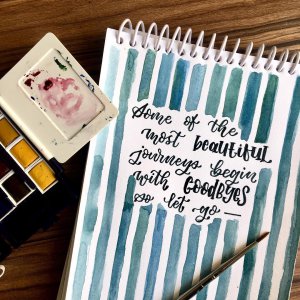 Some of the
most beautiful
journeys begin
with GOODBYES
so let go —